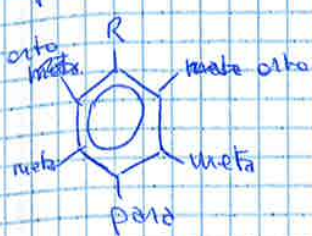 R
orto
meta
meta orto
meta
meta
para